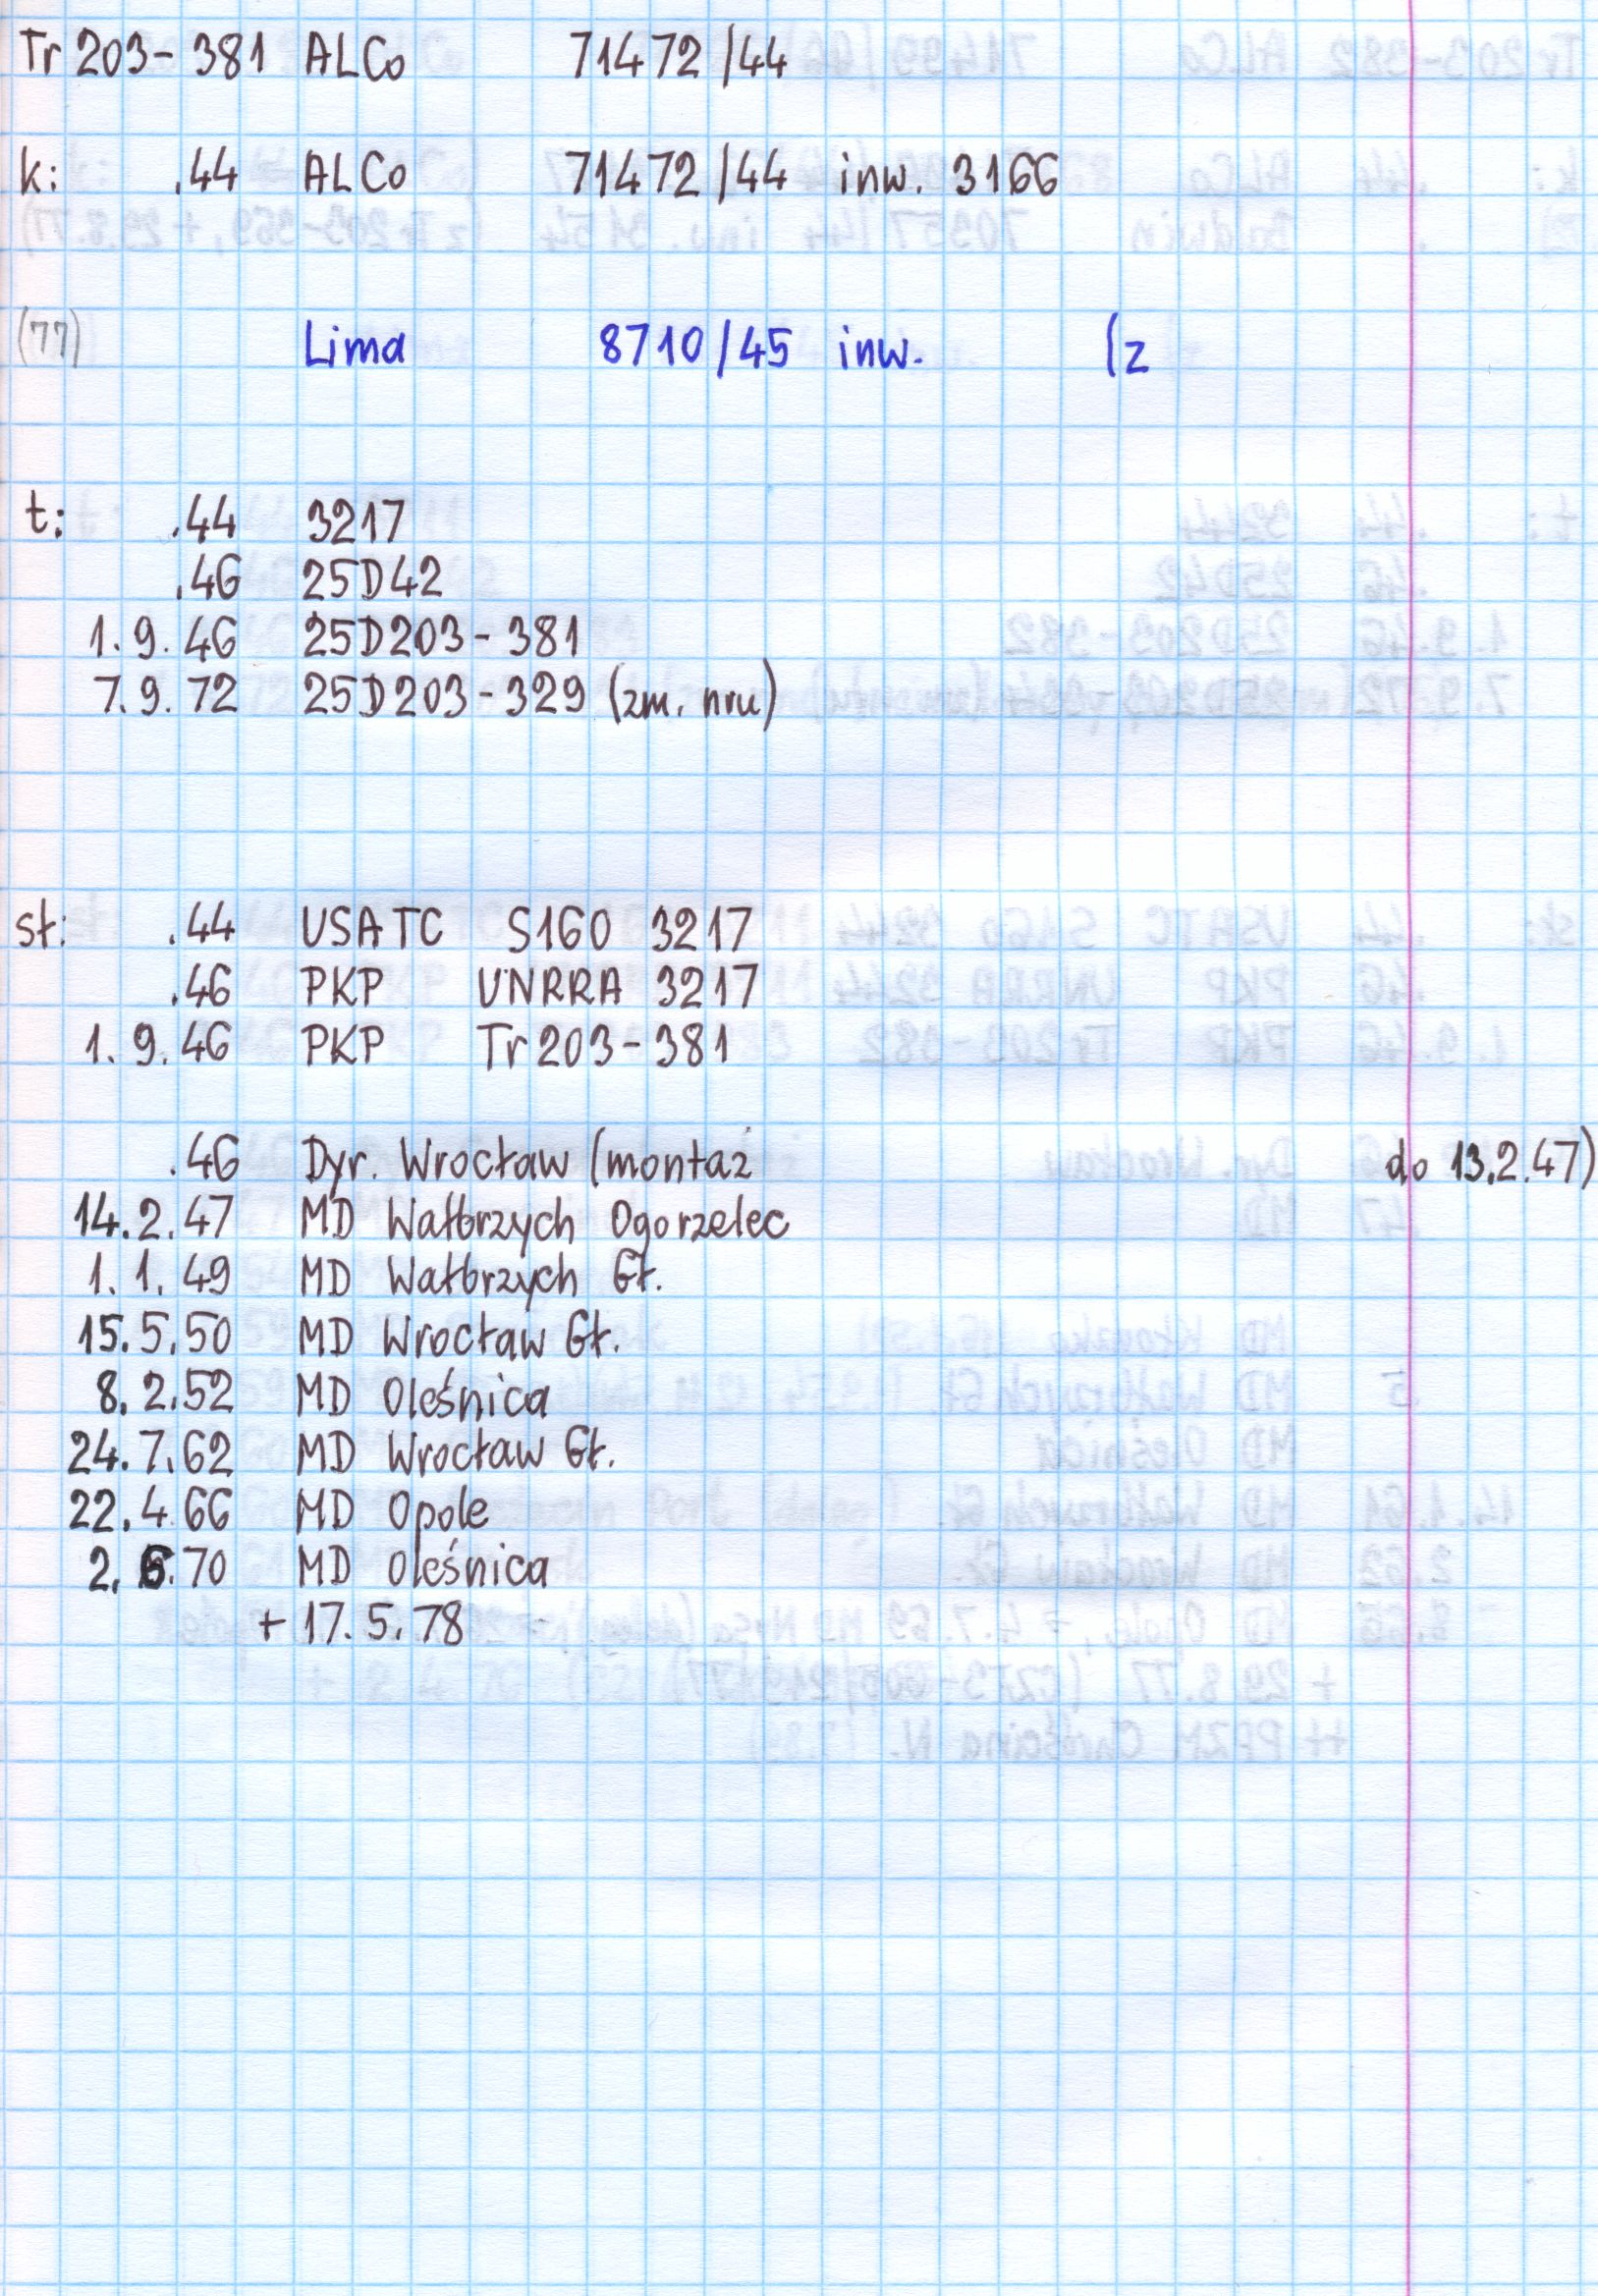 Tr 203-381 ALCo 71472/44
k: .44 ALCo 71472/44 inw. 3166
(77) Lima 8710/45 inw. (z
t: .44 3217
.46 25D42
1.9.46 25D203-381
7.9.72 25D203-329 (zm. nru)
st: .44 USATC S160 3217
.46 PKP UNRRA 3217
1.9.46 PKP Tr 203-381
.46 Dyr. Wrocław (montaż do 13.2.47)
14.2.47 MD Wałbrzych Ogorzelec
1.1.49 MD Wałbrzych Gł.
15.5.50 MD Wrocław Gł.
8.2.52 MD Oleśnica
24.7.62 MD Wrocław Gł.
22.4.66 MD Opole
2.6.70 MD Oleśnica
+ 17.5.78